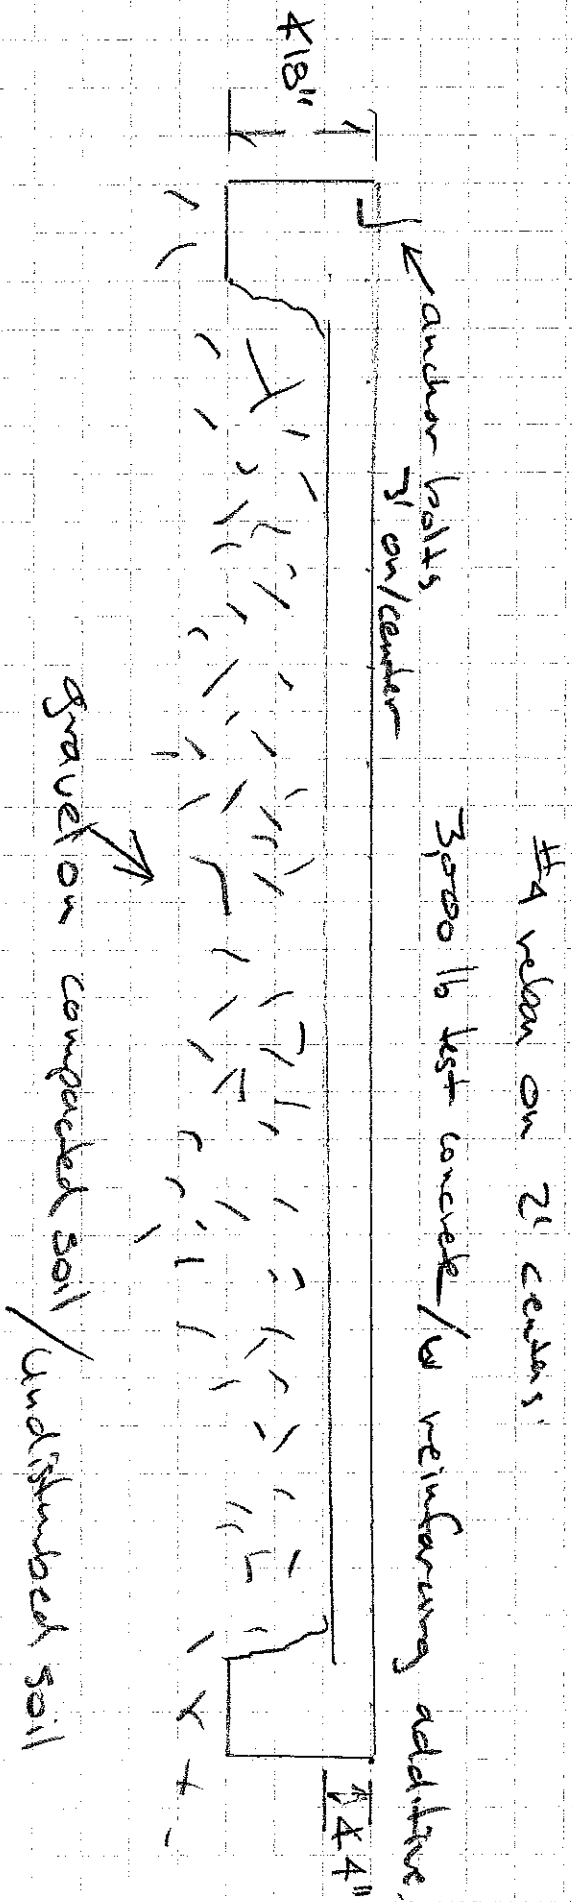 #4 rebar on 2' centers'
3,000 lb test concrete/w reinforcing additive
anchor bolts
3' on/center
18"
4"
gravel on compacted soil/undisturbed soil